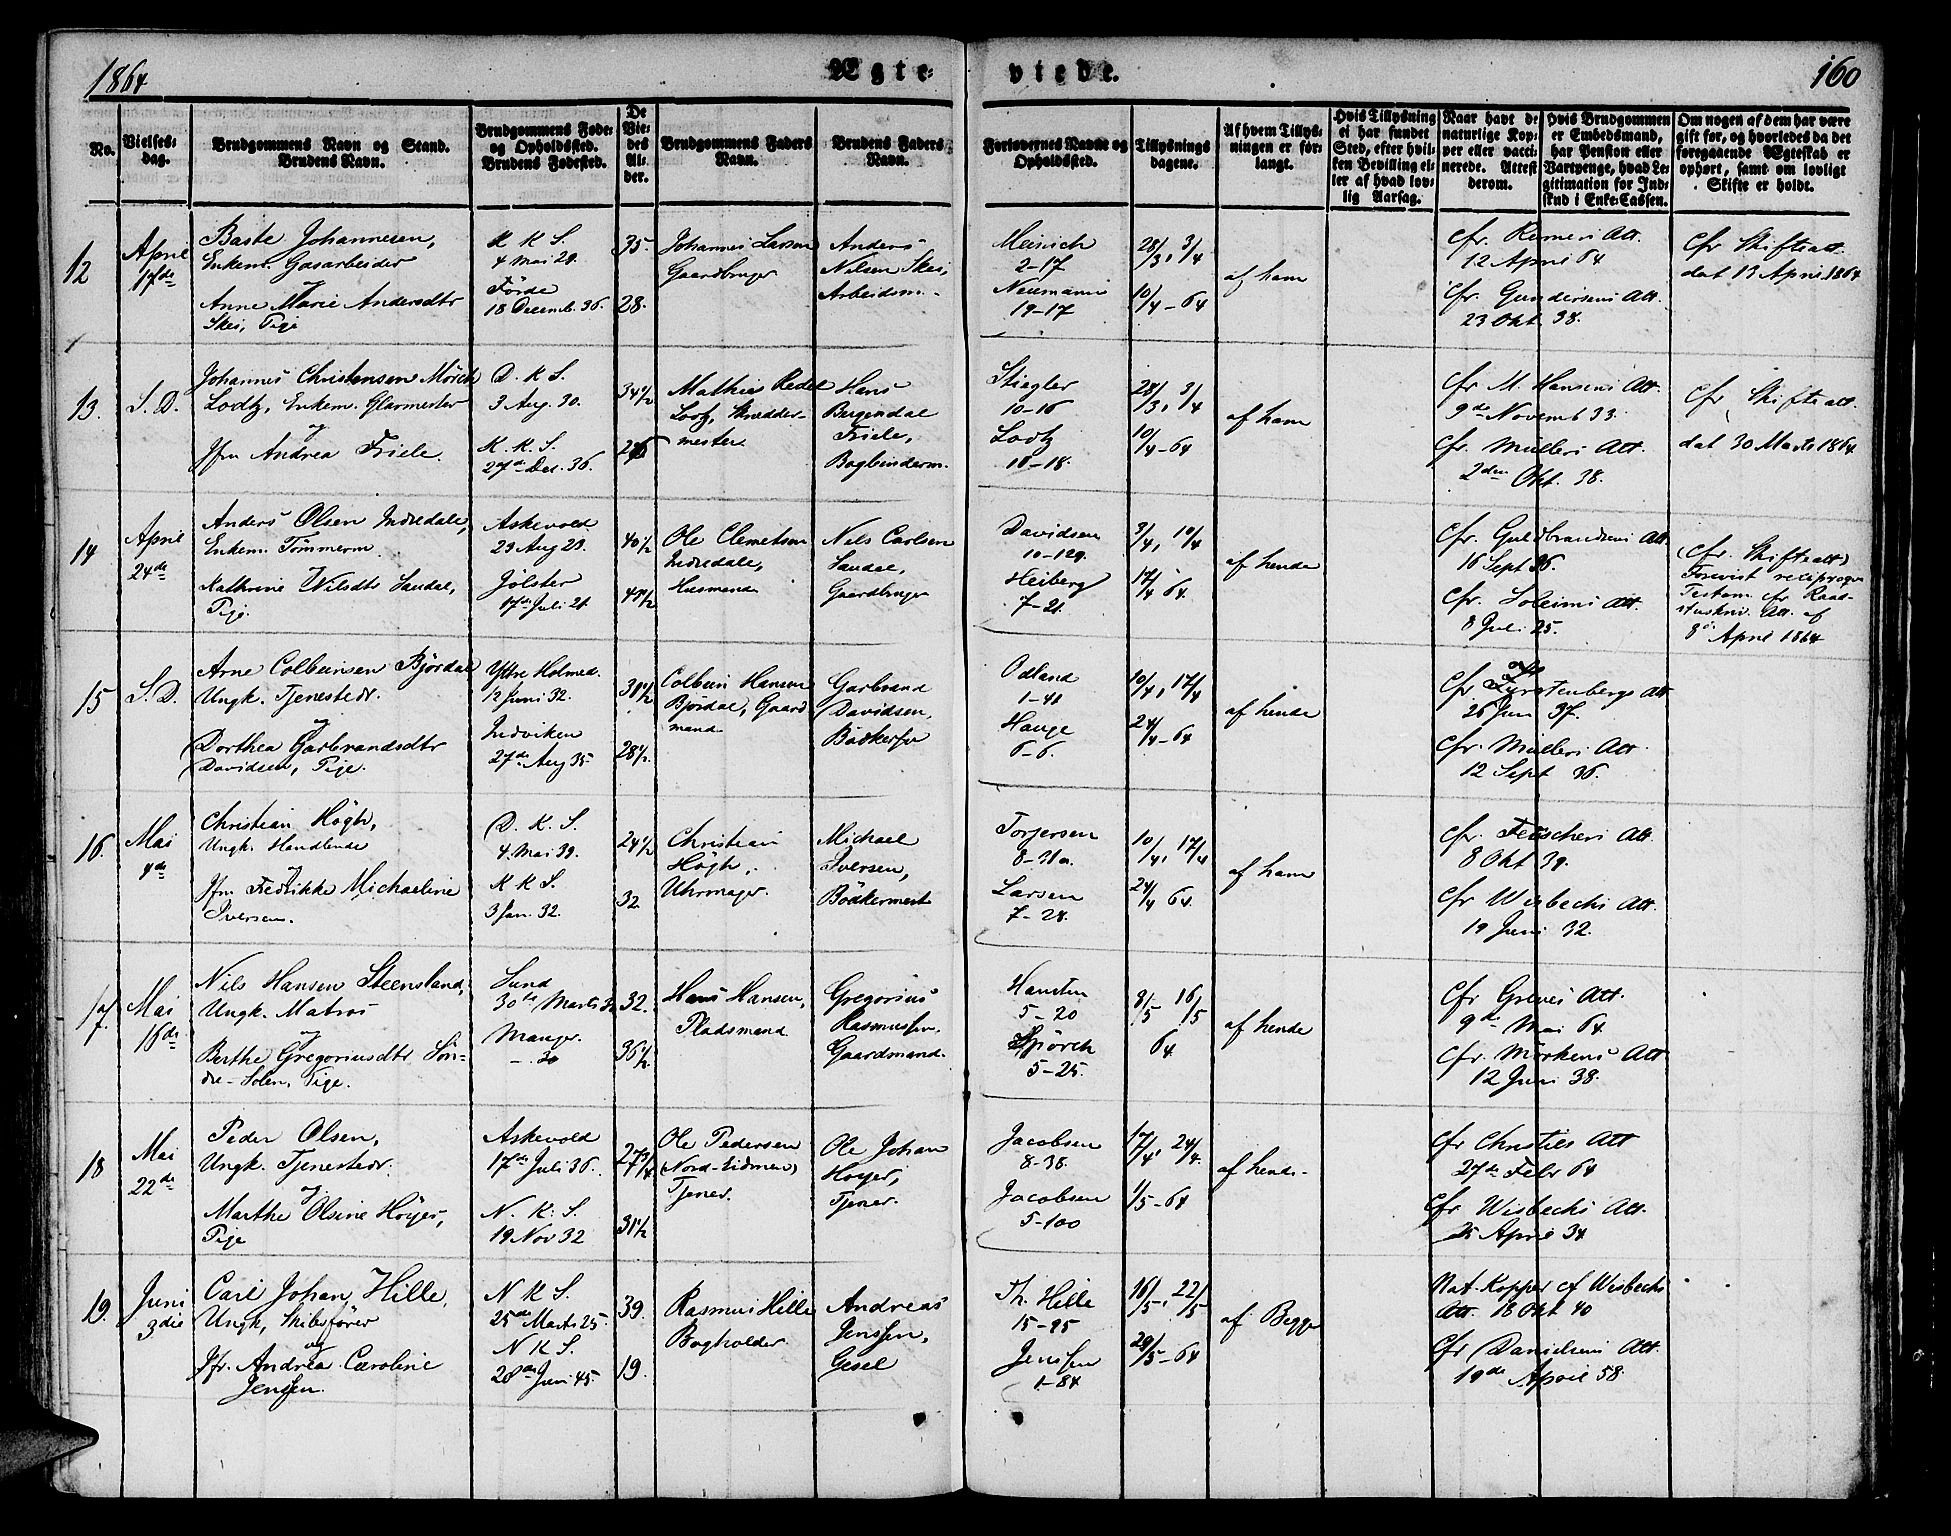 1864
Ægte-
viede.
160
No.
Vielses-
dag.
Brudgommens Navn og Stand.
Brudens Navn.
Brudgommens Føde-
og Opholdssted.
Brudens Fødested.
De
Vie-
des
Al-
der.
Brudgommens Faders
Navn.
Brudens Faders
Navn.
Forlovernes Navne og
Opholdssted.
Tillysnings
dagene.
Af hvem Tillys-
ningen er for-
langt.
Hvis Tillysning
ei har fundet
Sted, efter hvil-
ken Bevilling el-
ler af hvad lov-
lig Aarsag.
Naar havt de
naturlige Kop-
per eller vacci-
nerede. Attest
derom.
Hvis Brudgommen
er Embedsmand,
har Pension eller
Vartpenge, hvad Le-
gitimation for Ind-
skud i Enke-Cassen.
Om nogen af dem har være
gift før, og hvorledes da det
foregaaende Ægteskab er
ophørt, samt om lovligt
Skifte er holdt.
12
April
17de
Baste Johannesen,
Enkem. Gasarbeider
og
Anne Marie Andersdtr
Skei, Pige
K K S.
4 Mai 28.
Førde
18 Decemb. 36.
35.
28.
Johannes Larsen
Gaardbruger
Anders
Nilsen Skei,
Arbeidsm.
2-17
Neumann
19-17
28/3, 3/4
10/4-64
af ham
Cfr. Att.
12 April 64
Cfr. Gundersens Att.
23 Okt. 38.
Cfr Skifteatt.
dat 13 April 1864
13.
S. D.
Johannes Christensen Mørch
Lodtz, Enkem. Glarmester
og
Jfm Andrea Friele.
D. K S.
3 Aug. 30.
K. K. S.
27de Dec. 36.
34 1/2
Mathias Redel
Lodtz, Skrædder-
mester
Hans
Bergendal
Friele,
Bogbinderm.
Stiegler
10-16
Lodtz
10-18.
28/3, 3/4
10/4-64
af ham
Cfr M. Hansens Att.
9de Novemb 33.
Cfr. Müllers Att.
2den Okt. 38.
Cfr. Skifteatt.
dat 30 Marts 1864
14
April
24de
Anders Olsen Indredale,
Enkem. Tømmerm.
Kathrine Nilsdtr Sandal,
Pige.
Askevold
23 Aug 23.
Jølster
17de Juli 21.
40 1/2
Ole Clemetsen
Indredale,
Husmand
Nils Carlsen
Sandal,
Gaardbruger
Davidsen
10-129.
Heiberg
7-21.
3/4, 10/4
17/4 64.
af hende
Cfr. Guldbrandsens Att
16 Sept 36.
Cfr. Soleims Att.
8 Juli 25.
(Cfr. Skifteatt)
Forevist reciproqve
Testam. cfr Raad-
stueskriv. Att. af
8de April 1864
15
S. D.
Arne Colbeinsen Bjørdal
Ungk. Tjenestedr.
og
Dorthea Garbrandsdtr
Davidsen, Pige.
Yttre Holmed.
12 Juni 32.
Indviken
27de Aug 35.
31 1/2
28 1/2.
Colbein Hansen
Bjørdal, Gaard
mand
Garbrand
Davidsen,
Bødkersv
Odland
1-41
Hauge
6-6.
10/4, 17/4
24/4-64
af hende
Cfr. Fyrstenbergs Att
26 Jun 37.
Cfr. Müllers Att.
12 Sept 36.
16.
Mai
4de
Christian Høgh,
Ungk. Handlende
og
Jfm Fredrikke Michaeline
Iversen.
D. K. S.
4. Mai 39.
K K S.
3 Jan. 32.
24 1/2
32.
Christian
Høgh,
Uhrmager.
Michael
Iversen,
Bødkermest
Torjersen
8-31a.
Larsen
7-28.
10/4, 17/4
24/4 64.
af ham
Cfr. Feuschers Att.
8 Okt 39.
Cfr Wisbechs Att.
19 Juni 32.
17.
Mai
16de
Nils Hansen Steensland,
Ungk. Matros
og
Berthe Gregoriusdtr Søn-
dre-Solem, Pige.
Sund
30te Marts 32
Manger
-. 30
32.
36 1/2
Hans Hansen,
Pladsmand
Gregorius
Rasmussen,
Gaardmand.
Hansten
5-20
Spørck
5-25.
8/5 16/5
64.
af hende
Cfr Greves Att.
9de Mai 64.
Cfr. Mørkens Att
12 Juni 38.
18
Mai
22de
Peder Olsen,
Ungk. Tjenestedr.
og
Marthe Olsine Høyer,
Pige
Askevold
17de Juli 36.
N. K. S.
19 Nov 32
27 3/4
31 1/2
Ole Pedersen
(Nord-Eidmen)
Tjener.
Ole Johan
Høyer,
Tjener.
Jacobsen
8-38.
Jacobsen
5-100
17/4, 24/4.
1/5-64
af hende.
Cfr Christies Att
27de Febr 64
Cfr Wisbechs Att.
25 April 34
19.
Juni
3die
Carl Johan Hille,
Ungk, Skibsfører
og
Jfr. Andrea Caroline
Jenssen.
N K S.
25de Marts 25.
N K S.
20de Juni 45.
39.
19.
Rasmus Hille
Bogholder
Andreas
Jenssen,
Gesel
Th. Hille
15-95
Jenssen
1-84
16/5, 22/5
29/5-64
af Begge
Nat. Kopper cf Wisbechs
Att. 18 Okt 40
Cfr Danielsens Att.
19de April 58.